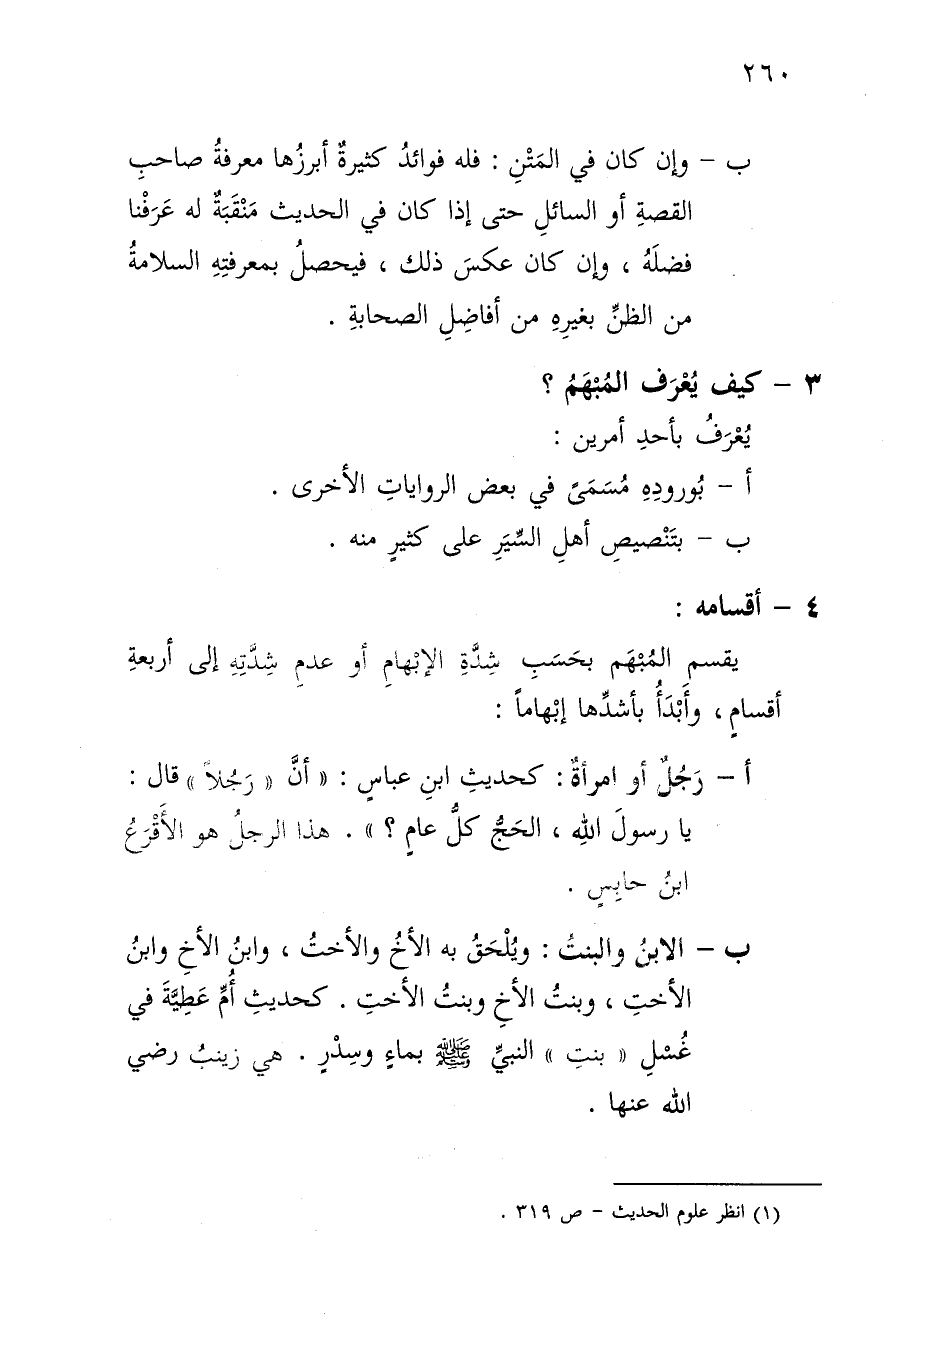 ٢٦٠
ب – وإن كان في المَتْنِ : فله فوائدُ كثيرةٌ أبرزُها معرفةُ صاحبِ
القصةِ أو السائلِ حتى إذا كان في الحديث مَنْقَبَةٌ له عَرَفْنا
فضلَهُ ، وإن كان عكسَ ذلك ، فيحصلُ بمعرفتِهِ السلامةُ
من الظنِّ بغيرِهِ من أفاضِلِ الصحابةِ .
٣ – كيف يُعْرَف المُبْهَمُ ؟
يُعْرَفُ بأحدِ أمرين :
أ – بُورودِهِ مُسَمَىً في بعض الرواياتِ الأخرى .
ب – بتَنْصيصِ أهلِ السِّيَرِ على كثيرٍ منه .
٤ – أقسامه :
يقسم المُبْهَم بحَسَبِ شِدَّةِ الإبْهامِ أو عدمِ شِدَّتِهِ إلى أربعةِ
أقسامٍ ، وأَبْدَأُ بأشدِّها إبْهاماً :
أ – رَجُلٌ أو امرأةٌ : كحديثِ ابنِ عباسٍ : « أنَّ « رَجُلاً » قال :
يا رسولَ اللهِ ، الحَجُّ كلُّ عامٍ ؟ » . هذا الرجلُ هو الأَقْرَعُ
ابنُ حابِسٍ .
ب – الابنُ والبنتُ : ويُلْحَقُ به الأخُ والأختُ ، وابنُ الأخِ وابنُ
الأختِ ، وبنتُ الأخِ وبنتُ الأختِ . كحديثِ أُمِّ عَطِيَّةَ في
غُسْلِ « بنتِ » النبيِّ ﷺ بماءٍ وسِدْرٍ . هي زينبُ رضي
الله عنها .
(١) انظر علوم الحديث – ص ٣١٩ .